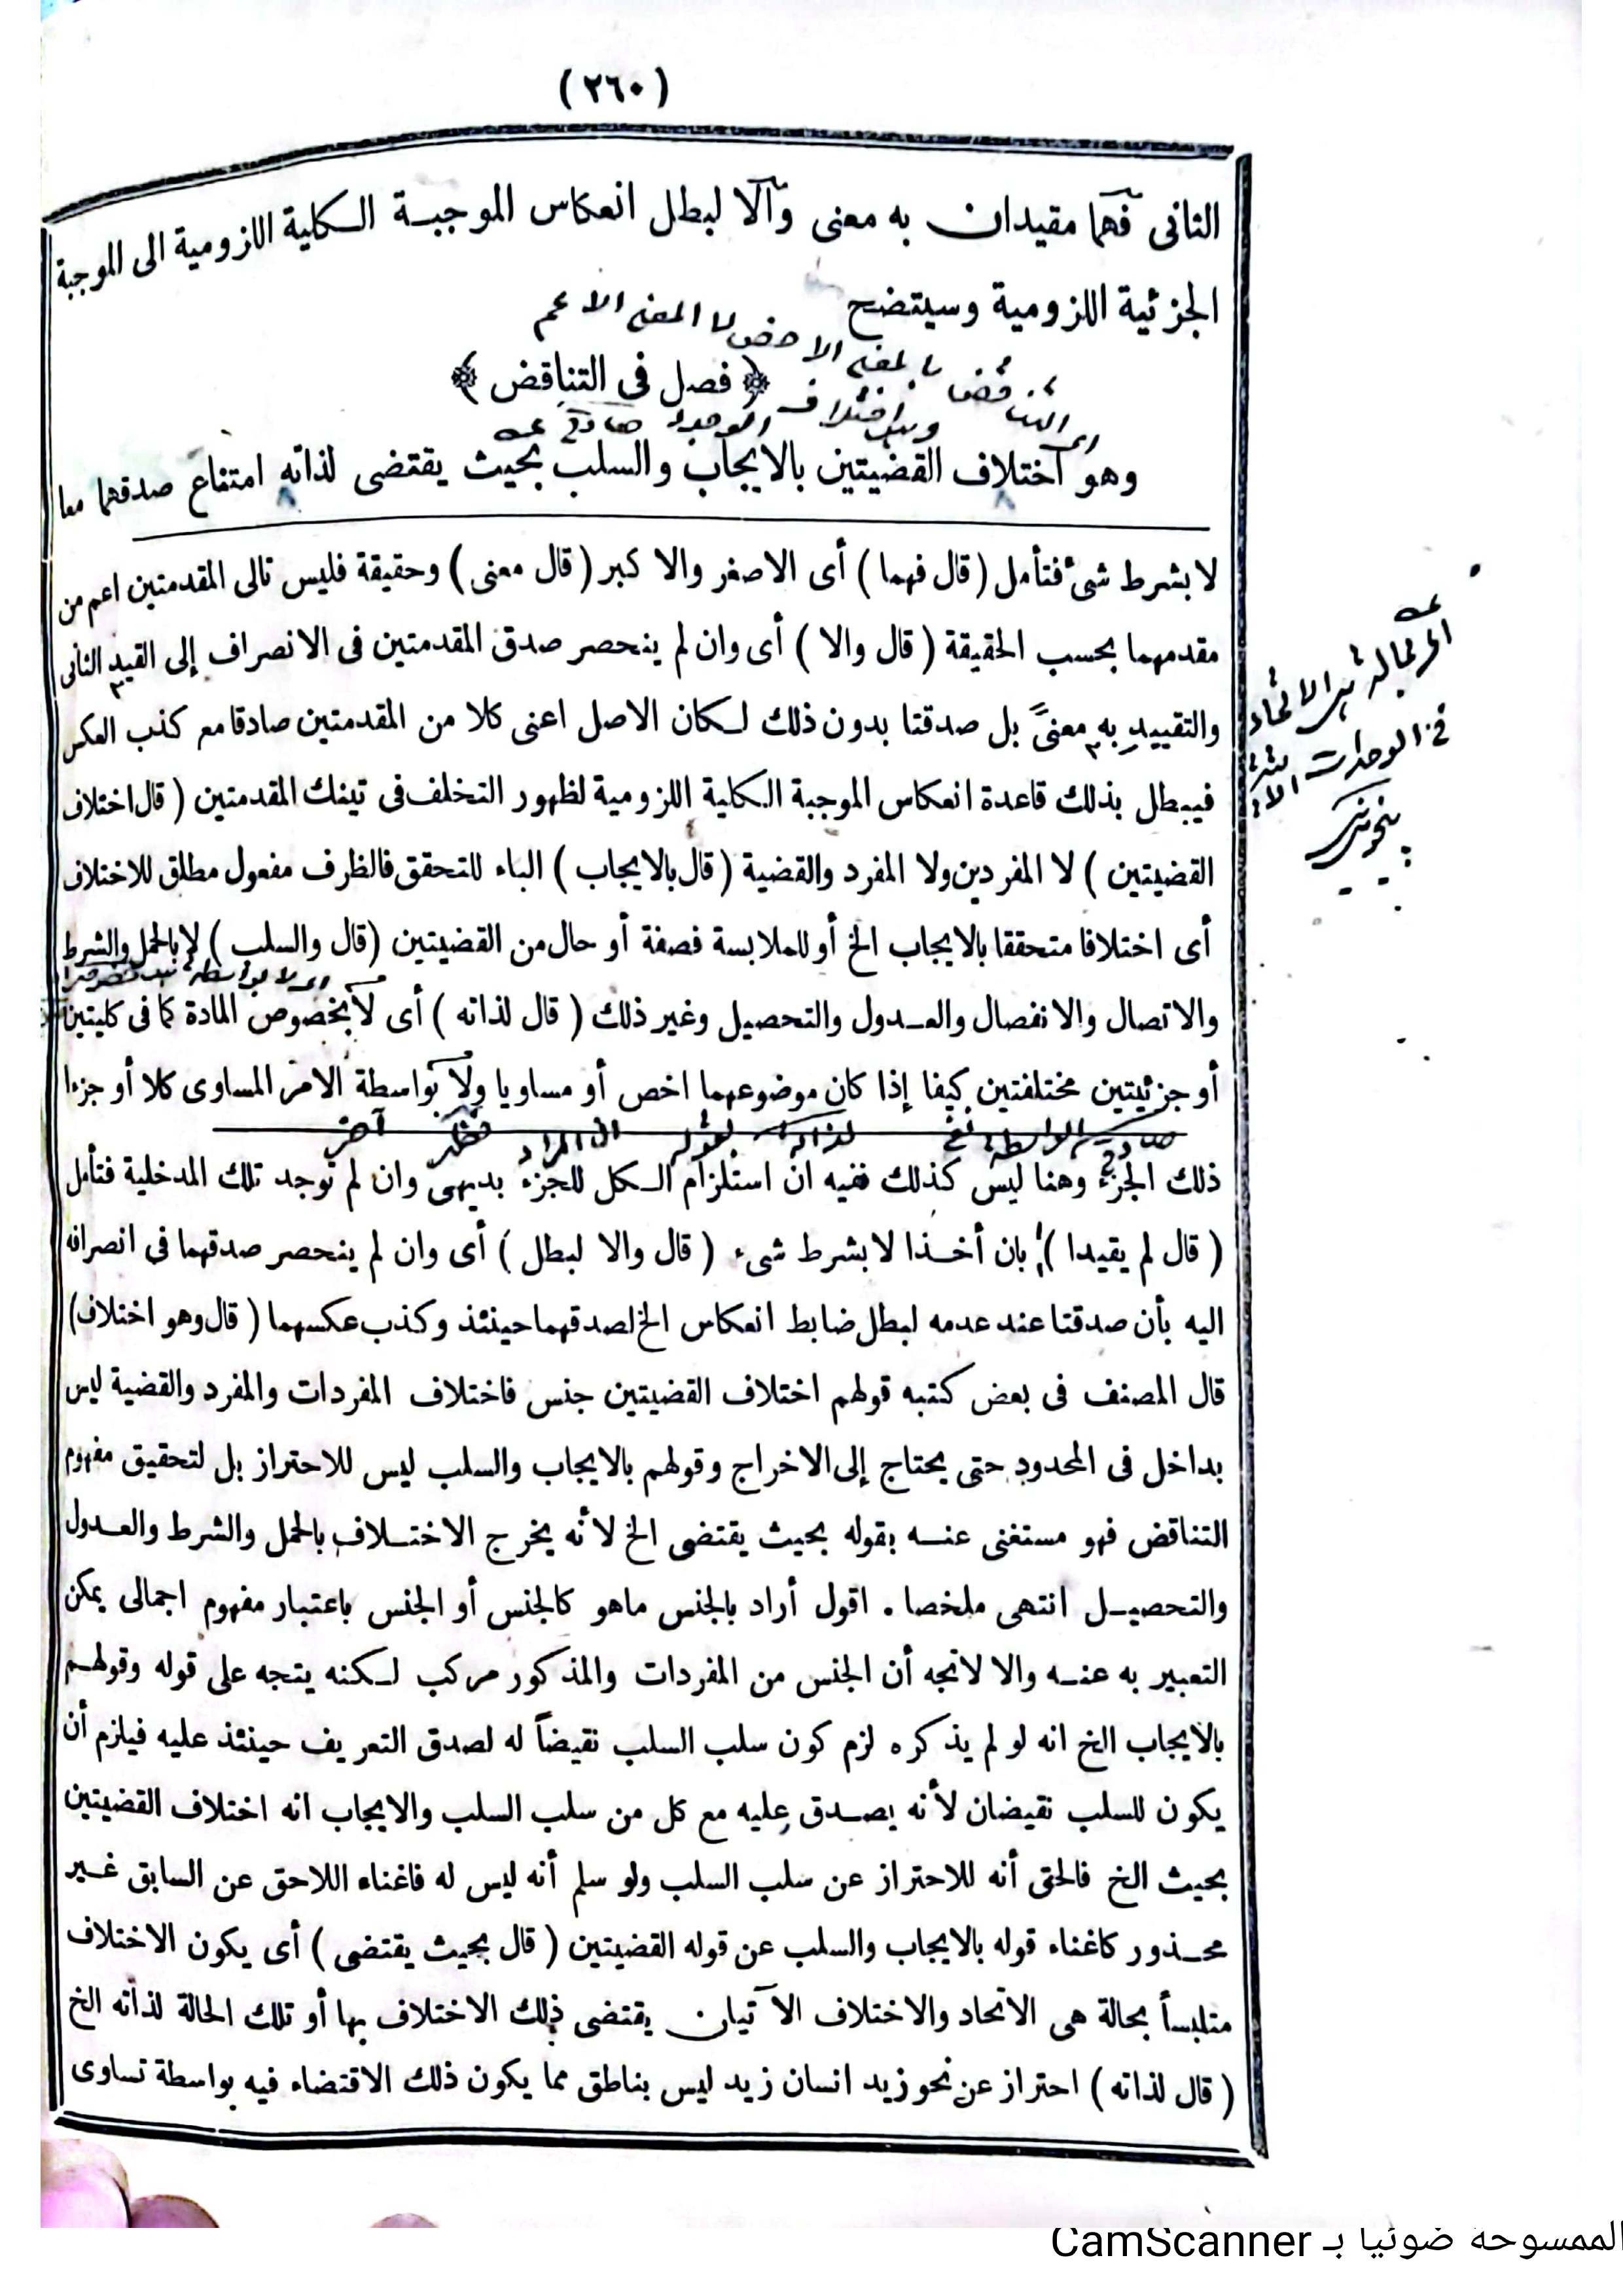 (٢٦٠)
الثانى فهما مقيدان به معنى وآلا لبطل انعكاس الموجبة الكلية اللزومية الى الموجبة
الجزئية اللزومية وسيتضح
لا المعنى الاعم
بالمعنى الاخص
اى التناقض
﴿ فصل فى التناقض ﴾
وهو اختلاف القضيتين بالايجاب والسلب بحيث يقتضى لذاته امتناع صدقهما معا
لا بشرط شئ فتأمل ( قال فهما ) أى الاصغر والاكبر ( قال معنى ) وحقيقة فليس تالى المقدمتين اعم من
مقدمهما بحسب الحقيقة ( قال والا ) أى وان لم ينحصر صدق المقدمتين فى الانصراف إلى القيد الثانى
والتقييد به معنىً بل صدقتا بدون ذلك لكان الاصل اعنى كلا من المقدمتين صادقا مع كذب العكس
فيبطل بذلك قاعدة انعكاس الموجبة الكلية اللزومية لظهور التخلف فى تينك المقدمتين ( قال اختلاف
القضيتين ) لا المفردين ولا المفرد والقضية ( قال بالايجاب ) الباء للتحقق فالظرف مفعول مطلق للاختلاف
أى اختلافا متحققا بالايجاب الخ أو للملابسة فصفة أو حال من القضيتين ( قال والسلب ) لا بالحمل والشرط
والاتصال والانفصال والعدول والتحصيل وغير ذلك ( قال لذاته ) أى لا بخصوص المادة كما فى كليتين
أو جزئيتين مختلفتين كيفا إذا كان موضوعهما اخص أو مساويا ولا بواسطة الامر المساوى كلا أو جزءا
ذلك الجزء وهنا ليس كذلك ففيه ان استلزام الكل للجزء بديهى وان لم توجد تلك المدخلية فتأمل
( قال لم يقيدا ) بان أخذا لا بشرط شىء ( قال والا لبطل ) أى وان لم ينحصر صدقهما فى انصرافه
اليه بأن صدقتا عند عدمه لبطل ضابط انعكاس الخ لصدقهما حينئذ وكذب عكسهما ( قال وهو اختلاف )
قال المصنف فى بعض كتبه قولهم اختلاف القضيتين جنس فاختلاف المفردات والمفرد والقضية ليس
بداخل فى المحدود حتى يحتاج إلى الاخراج وقولهم بالايجاب والسلب ليس للاحتراز بل لتحقيق مفهوم
التناقض فهو مستغنى عنه بقوله بحيث يقتضى الخ لأنه يخرج الاختلاف بالحمل والشرط والعدول
والتحصيل انتهى ملخصا . اقول أراد بالجنس ماهو كالجنس أو الجنس باعتبار مفهوم اجمالى يمكن
التعبير به عنه والا لاتجه أن الجنس من المفردات والمذكور مركب لكنه يتجه على قوله وقولهم
بالايجاب الخ انه لو لم يذكره لزم كون سلب السلب نقيضاً له لصدق التعريف حينئذ عليه فيلزم أن
يكون للسلب نقيضان لأنه يصدق عليه مع كل من سلب السلب والايجاب انه اختلاف القضيتين
بحيث الخ فالحق أنه للاحتراز عن سلب السلب ولو سلم أنه ليس له فاغناء اللاحق عن السابق غير
محذور كاغناء قوله بالايجاب والسلب عن قوله القضيتين ( قال بحيث يقتضى ) أى يكون الاختلاف
متلبساً بحالة هى الاتحاد والاختلاف الآتيان يقتضى ذلك الاختلاف بها أو تلك الحالة لذاته الخ
( قال لذاته ) احتراز عن نحو زيد انسان زيد ليس بناطق مما يكون ذلك الاقتضاء فيه بواسطة تساوى
الممسوحة ضوئيا بـ CamScanner